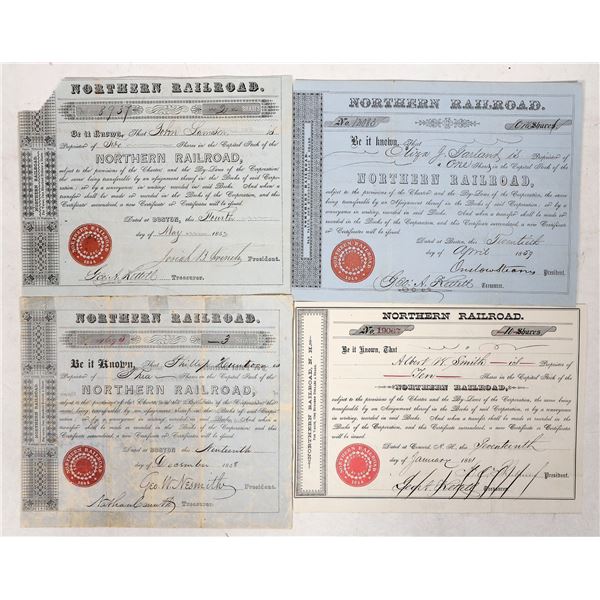 NORTHERN RAILROAD.
Be it Known, That John Lamson is
Proprietor of Shares in the Capital Stock of the
NORTHERN RAILROAD,
subject to the provisions of the Charter and the By-Laws of the Corporation; the same
being transferable by an Assignment thereof in the Books of said Corporation,
or by a conveyance in writing, recorded in said Books. And when a transfer
shall be made or recorded in the Books of the Corporation, and this
Certificate surrendered, a new Certificate or Certificates will be issued.
Dated at BOSTON, the Fourth
day of May
President.
Geo. A. Kettell Treasurer.
NORTHERN RAILROAD
NORTHERN RAILROAD.
No. One Shares,
Be it known, That
Eliza J. Garland is Proprietor of
One Shares in the Capital Stock of the
NORTHERN RAILROAD,
subject to the provisions of the Charter and the By-Laws of the Corporation, the same being
transferable by an Assignment thereof in the Books of said Corporation, or by a conveyance
in writing, recorded in said Books. And when a transfer shall be made or recorded
in the Books of the Corporation, and this Certificate surrendered, a new
Certificate or Certificates will be issued.
Dated at Boston, the Twentieth
day of April
Onslow Stearns President.
Geo. A. Kettell Treasurer.
NORTHERN RAILROAD
NORTHERN RAILROAD.
3
Be it Known, That Phillip is
Proprietor of Three Shares in the Capital Stock of the
NORTHERN RAILROAD,
subject to the provisions of the Charter and the By-Laws of the Corporation, the same being
transferable by an Assignment thereof in the Books of said Corporation
or by a conveyance in writing, recorded in said Books. And when a transfer
shall be made or recorded in the Books of the Corporation, and this
Certificate surrendered, a new Certificate or Certificates
will be issued.
Dated at BOSTON, the Nineteenth
day of December 1848
Geo. W. Nesmith President.
Treasurer.
NORTHERN RAILROAD
1844
NORTHERN RAILROAD.
No. 19067 10 Shares
Be it Known, That
Albert W. Smith is Proprietor of
Ten Shares in the Capital Stock of the
NORTHERN RAILROAD,
subject to the provisions of the Charter and the By-Laws of the Corporation, the same being
transferable by an Assignment thereof in the Books of said Corporation, or by a conveyance
in writing, recorded in said Books. And when a transfer shall be made or recorded in
the Books of the Corporation, and this Certificate surrendered, a new Certificate or Certificates
will be issued.
Dated at Concord, N. H., the Seventeenth
day of January 1881
President.
Treasurer.
NORTHERN RAILROAD, N. H.
NORTHERN RAILROAD
1844